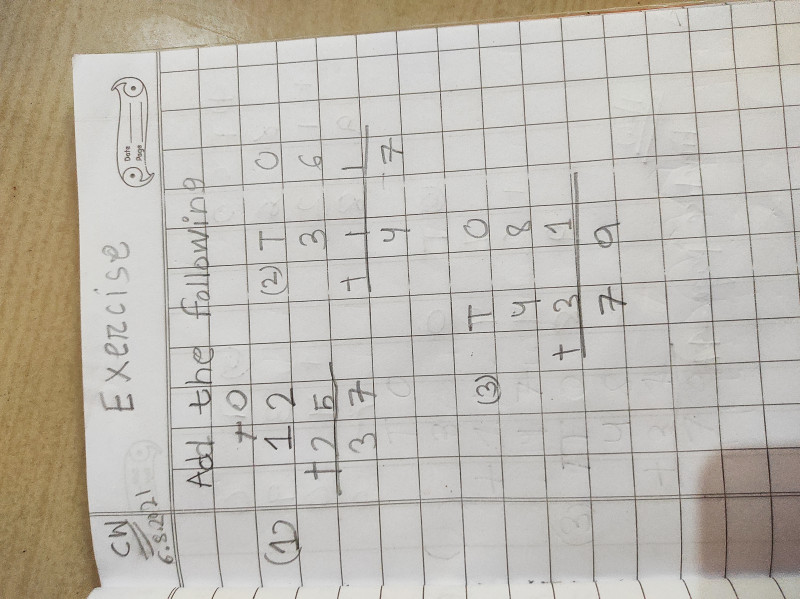 CW
6.8.2021
Date
Page
Exercise
Add the following
(1) T O
1 2
+ 2 5
3 7
(2) T O
3 6
+ 1 1
4 7
(3) T O
4 8
+ 3 1
7 9